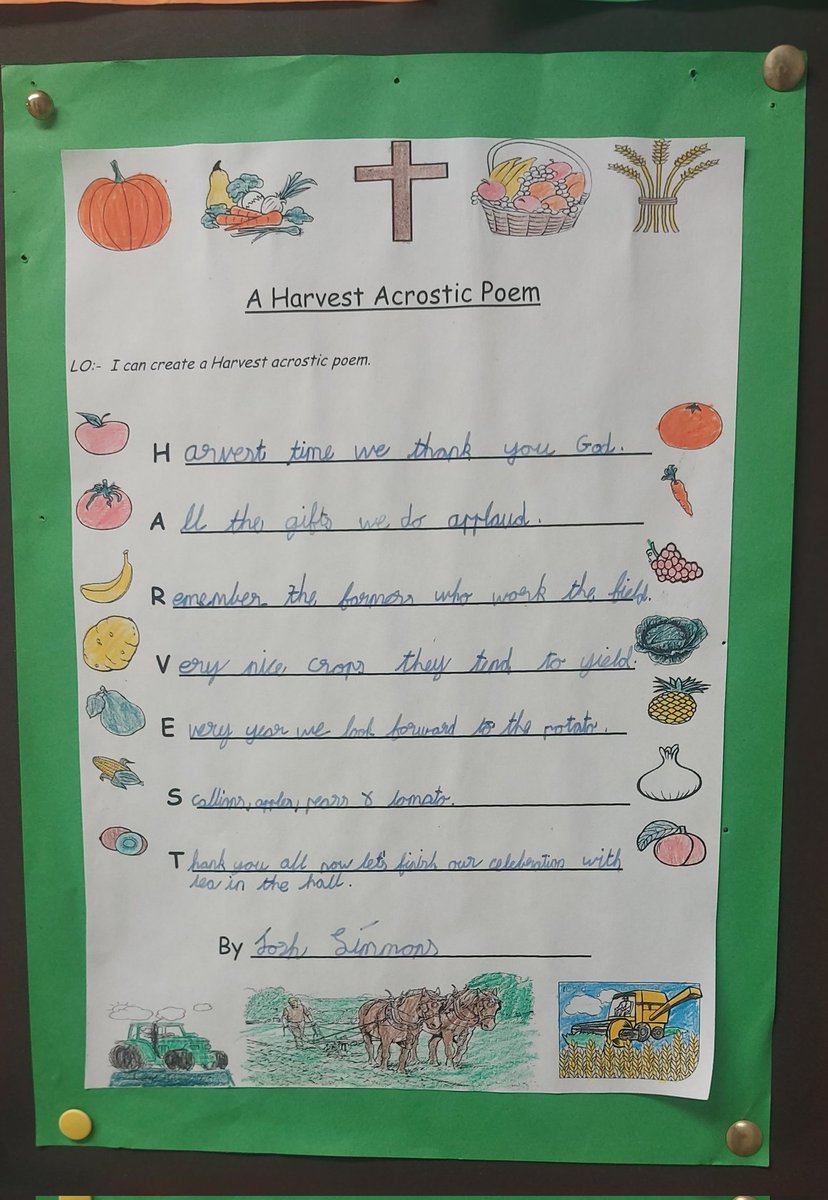 A Harvest Acrostic Poem
LO:- I can create a Harvest acrostic poem.
Harvest time we thank you God.
All the gifts we do applaud.
Remember the farmers who work the field.
Very nice crops they tend to yield.
Every year we look forward to the potato.
Scallions, apples, pears & tomato.
Thank you all now let's finish our celebration with
tea in the hall.
By Josh Simmons